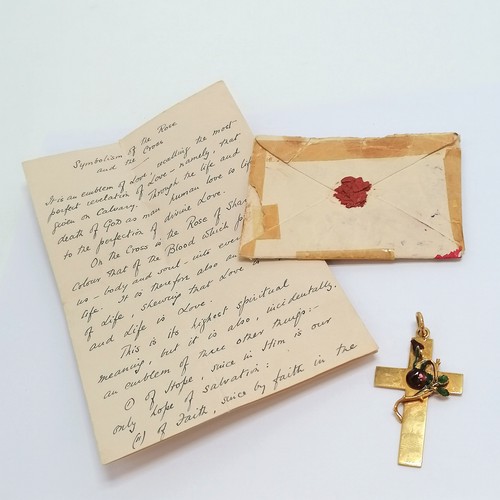 Symbolism of the Rose
and the Cross
It is an emblem of Love, recalling the most
perfect revelation of Love – namely, that
given on Calvary. Through the life and
death of God as man human love is lif
to the perfection of divine Love.
On the Cross is the Rose of Shar
Colour that of the Blood which p
us – body and soul – into ever
life. It is therefore also an
of Life, shewing that Love is
and Life is Love.
This is its highest spiritual
meaning, but it is also, incidentally,
an emblem of three other things:–
(i) of Hope, since in Him is our
only hope of salvation:
(ii) of Faith, since by faith in the